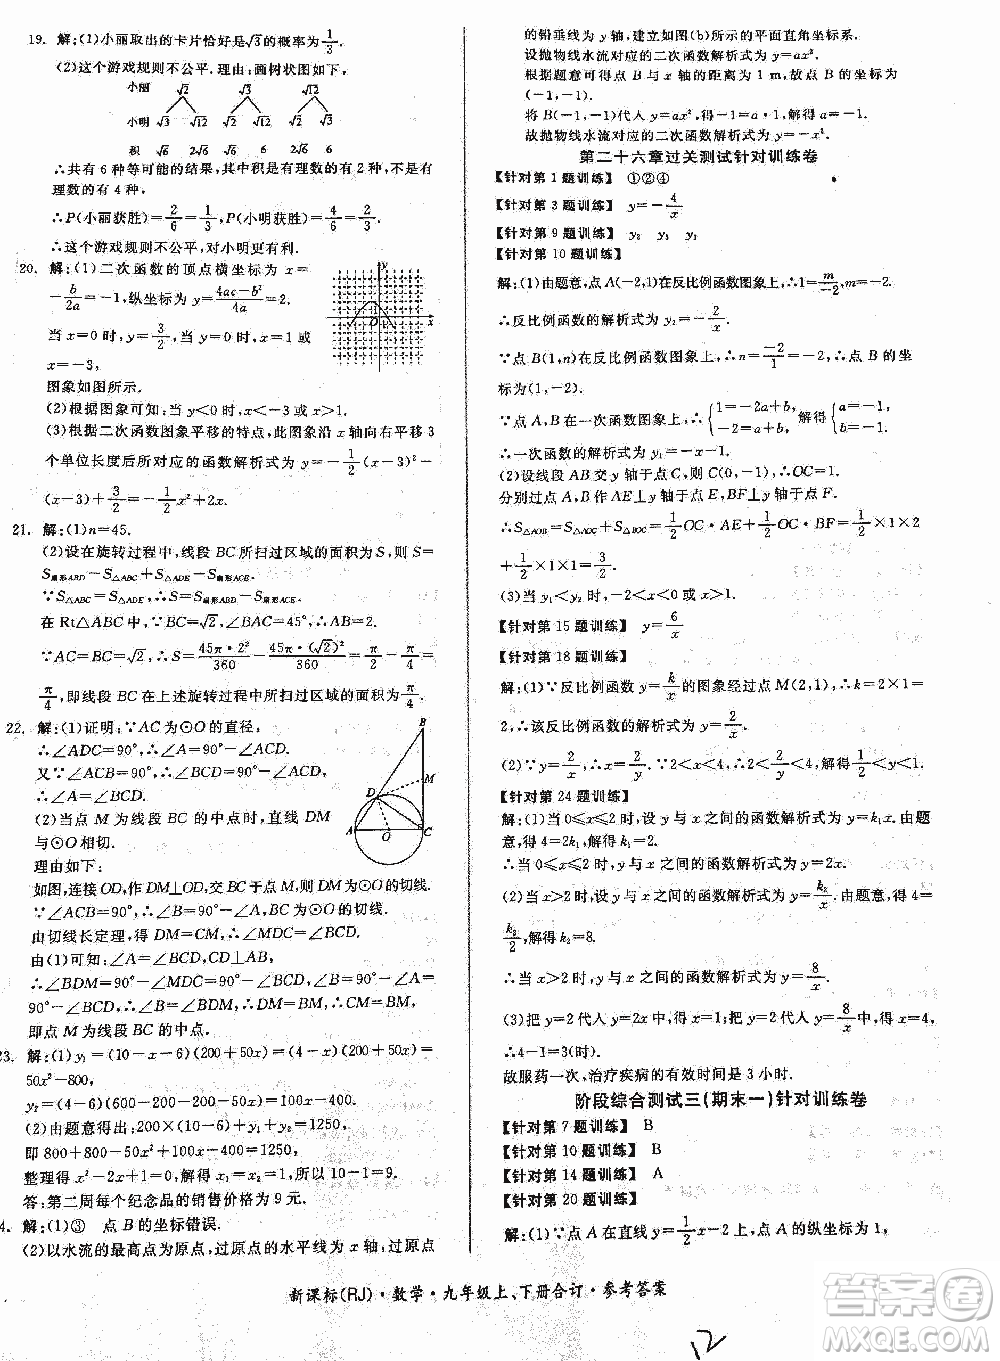 19. 解:(1)小丽取出的卡片恰好是√3的概率为1/3.
(2)这个游戏规则不公平.理由:画树状图如下:
小丽 √2 √3 √12
小明 √3 √12 √2 √12 √2 √3
积 √6 2√6 √6 6 2√6 6
∴共有 6 种等可能的结果,其中积是有理数的有 2 种,积是无理数的有 4 种,
∴P(小丽获胜)=2/6=1/3,P(小明获胜)=4/6=2/3.
∴这个游戏规则不公平,对小明更有利.
20. 解:(1)二次函数的顶点横坐标为 x=
-b/2a=-1,纵坐标为 y=(4ac-b²)/4a=2.
当 x=0 时,y=3/2;当 y=0 时,x=1 或
x=-3,
图象如图所示.
(2)根据图象可知:当 y<0 时,x<-3 或 x>1.
(3)根据二次函数图象平移的特点,此图象沿 x 轴向右平移 3
个单位长度后所对应的函数解析式为 y=-1/2(x-3)²-
(x-3)+3/2=-1/2x²+2x.
21. 解:(1)n=45.
(2)设在旋转过程中,线段 BC 所扫过区域的面积为 S,则 S=
S扇形ABD-S△ABC+S△ADE-S扇形ACE.
∵S△ABC=S△ADE,∴S=S扇形ABD-S扇形ACE.
在 Rt△ABC 中,∵BC=√2,∠BAC=45°,∴AB=2.
∵AC=BC=√2,∴S=45π·2²/360-45π·(√2)²/360=π/2-π/4=
π/4,即线段 BC 在上述旋转过程中所扫过区域的面积为π/4.
22. 解:(1)证明:∵AC为⊙O的直径,
∴∠ADC=90°,∴∠A=90°-∠ACD.
又∵∠ACB=90°,∴∠BCD=90°-∠ACD,
∴∠A=∠BCD.
(2)当点 M 为线段 BC 的中点时,直线 DM
与⊙O相切.
理由如下:
如图,连接 OD,作 DM⊥OD,交 BC于点 M,则 DM为⊙O的切线.
∵∠ACB=90°,∴BC为⊙O的切线.
由切线长定理,得 DM=CM,∴∠MDC=∠BCD.
由(1)可知,∠A=∠BCD,∠CDB=90°.
∴∠BDM=90°-∠MDC=90°-∠BCD,∠B=90°-∠A=
90°-∠BCD,∴∠B=∠BDM,∴DM=BM,∴CM=BM,
即点 M为线段 BC 的中点.
23. 解:(1)y₁=(10-x-6)(200+50x)=(4-x)(200+50x)=
50x²+800.
y₂=(4-6)(600-200-200-50x)=100x-400.
(2)由题意可得:200×(10-6)+y₁+y₂=1250,
即 800+800-50x²+100x-400=1250,
整理得 x²-2x+1=0,解得 x₁=x₂=1,所以10-x=9.
答:第二周每个纪念品的销售价格为 9 元.
4. 解:(1)③ 点 B的坐标错误.
(2)以水流的最高点为原点,过原点的水平线为 x 轴,过原点
的铅垂线为 y 轴,建立如图(b)所示的平面直角坐标系.
设抛物线水流对应的二次函数解析式为 y=ax².
根据题意可得点 B 与 x 轴的距离为 1 m,故点 B 的坐标为
(-1,-1).
将 B(-1,-1)代入 y=ax²,得-1=a·1,解得 a=-1.
故抛物线水流对应的二次函数解析式为 y=-x².
第二十六章过关测试针对训练卷
【针对第 1 题训练】 ①②④
【针对第 3 题训练】 y=-4/x
【针对第 9 题训练】 y₂ y₃ y₁
【针对第 10 题训练】
解:(1)由题意,点 A(-2,1)在反比例函数图象上,∴1=m/-2,m=-2.
∴反比例函数的解析式为 y₂=-2/x.
∵点 B(1,n)在反比例函数图象上,∴n=-2/1=-2,∴点 B 的坐
标为(1,-2).
∵点 A,B在一次函数图象上,∴{1=-2a+b,-2=a+b,解得{a=-1,b=-1.
∴一次函数的解析式为 y₁=-x-1.
(2)设线段 AB 交 y 轴于点 C,则 C(0,-1).
分别过点 A,B 作 AE⊥y 轴于点 E,BF⊥y 轴于点 F.
∴S△AOB=S△AOC+S△BOC=1/2OC·AE+1/2OC·BF=1/2×1×2
+1/2×1×1=3/2.
(3)当 y₁<y₂ 时,-2<x<0 或 x>1.
【针对第 15 题训练】 y=6/x
【针对第 18 题训练】
解:(1)∵反比例函数 y=k/x的图象经过点 M(2,1),∴k=2×1=
2,∴该反比例函数的解析式为 y=2/x.
(2)∵y=2/x,∴x=2/y.∵2<x<4,∴2<2/y<4,解得1/2<y<1.
【针对第 24 题训练】
解:(1)当 0≤x≤2 时,设 y 与 x 之间的函数解析式为 y=k₁x.由题
意,得 4=2k₁,解得 k₁=2.
∴当 0≤x≤2 时,y 与 x 之间的函数解析式为 y=2x.
(2)当 x>2 时,设 y 与 x 之间的函数解析式为 y=k₂/x,由题意,得 4=
k₂/2,解得 k₂=8.
∴当 x>2 时,y 与 x 之间的函数解析式为 y=8/x.
(3)把 y=2代入 y=2x中,得 x=1,把 y=2代入 y=8/x中,得 x=4,
∴4-1=3(时).
故服药一次,治疗疾病的有效时间是 3 小时.
阶段综合测试三(期末一)针对训练卷
【针对第 7 题训练】 B
【针对第 10 题训练】 B
【针对第 14 题训练】 A
【针对第 20 题训练】
解:(1)∵点 A 在直线 y=1/2x-2上,点 A 的纵坐标为 1,
新课标(RJ)·数学·九年级上、下册合订·参考答案
12
答案圈
MXQE.COM